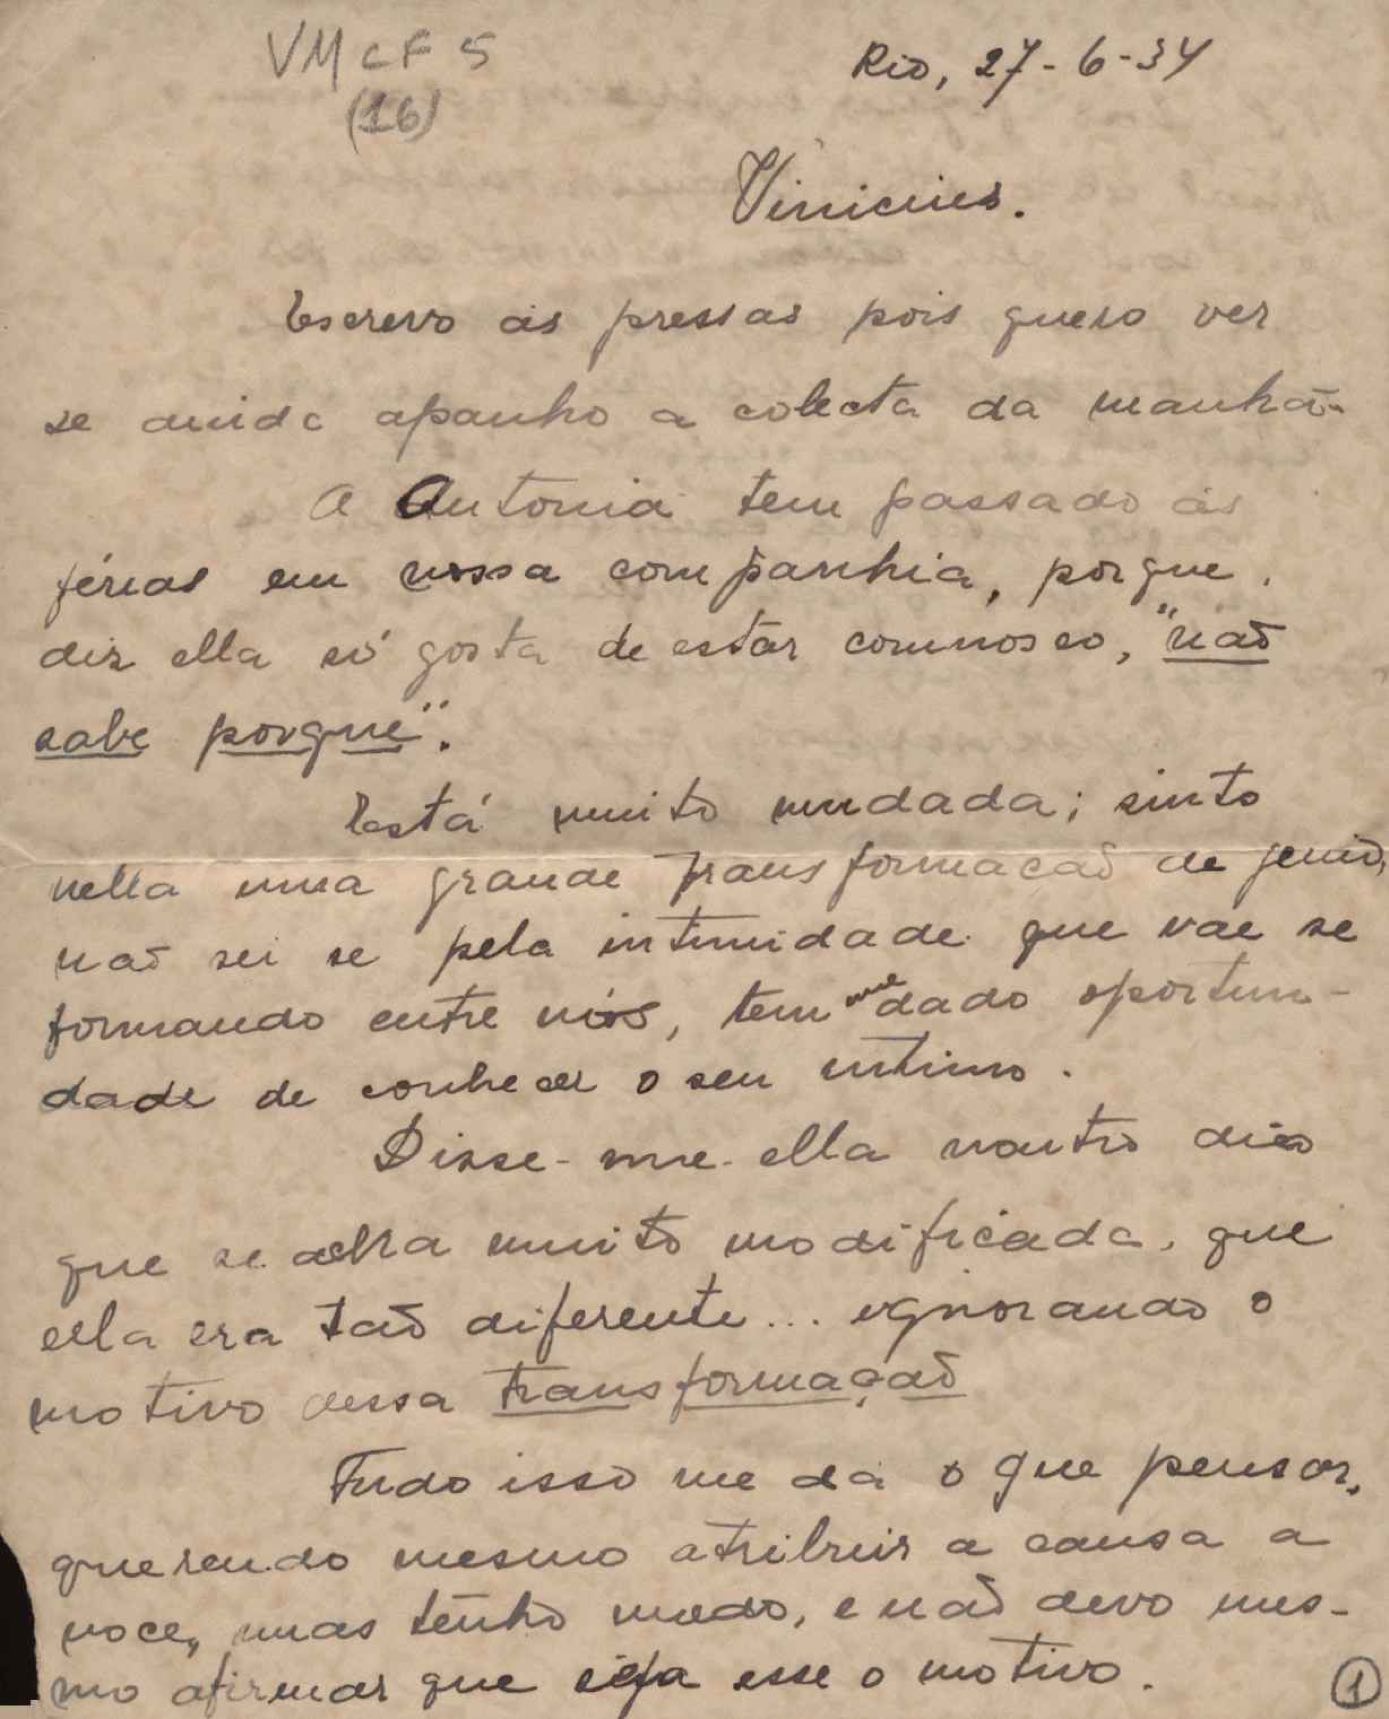 VM CF 5
(16)
Rio, 27-6-34
Vinicius.
Escrevo ás pressas pois quero ver
se ainda apanho a colecta da manhã.
A Antonia tem passado as
férias em nossa companhia, porque,
diz ella só gosta de estar comnosco, "não
sabe porque".
Está muito mudada; sinto
nella uma grande transformacão de genio,
não sei se pela intimidade que vae se
formando entre nós, tem me dado oportuni-
dade de conhecer o seu intimo.
Disse-me-ella noutro dia
que se acha muito modificada, que
ella era tão diferente... ignorando o
motivo dessa transformação
Tudo isso me dá o que pensar,
querendo mesmo atribuir a causa a
voce, mas tenho medo, e não devo mes-
mo afirmar que seja esse o motivo.
1